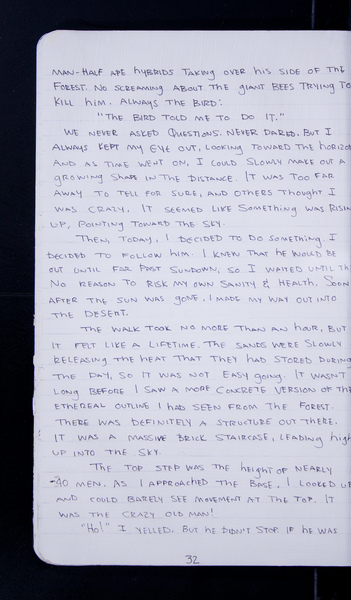 MAN-HALF APE HYBRIDS TAKING OVER HIS SIDE OF THE
FOREST. NO SCREAMING ABOUT THE GIANT BEES TRYING TO
KILL HIM. ALWAYS THE BIRD:
"THE BIRD TOLD ME TO DO IT."
WE NEVER ASKED QUESTIONS. NEVER DARED. BUT I
ALWAYS KEPT MY EYE OUT, LOOKING TOWARD THE HORIZON
AND AS TIME WENT ON, I COULD SLOWLY MAKE OUT A
GROWING SHAPE IN THE DISTANCE. IT WAS TOO FAR
AWAY TO TELL FOR SURE, AND OTHERS THOUGHT I
WAS CRAZY. IT SEEMED LIKE SOMETHING WAS RISING
UP, POINTING TOWARD THE SKY.
THEN, TODAY, I DECIDED TO DO SOMETHING. I
DECIDED TO FOLLOW HIM. I KNEW THAT HE WOULD BE
OUT UNTIL FAR PAST SUNDOWN, SO I WAITED UNTIL THEN
NO REASON TO RISK MY OWN SANITY & HEALTH. SOON
AFTER THE SUN WAS GONE, I MADE MY WAY OUT INTO
THE DESERT.
THE WALK TOOK NO MORE THAN AN HOUR, BUT
IT FELT LIKE A LIFETIME. THE SANDS WERE SLOWLY
RELEASING THE HEAT THAT THEY HAD STORED DURING
THE DAY, SO IT WAS NOT EASY GOING. IT WASN'T
LONG BEFORE I SAW A MORE CONCRETE VERSION OF THE
ETHEREAL OUTLINE I HAD SEEN FROM THE FOREST.
THERE WAS DEFINITELY A STRUCTURE OUT THERE.
IT WAS A MASSIVE BRICK STAIRCASE, LEADING HIGH
UP INTO THE SKY.
THE TOP STEP WAS THE HEIGHT OF NEARLY
40 MEN. AS I APPROACHED THE BASE, I LOOKED UP
AND COULD BARELY SEE MOVEMENT AT THE TOP. IT
WAS THE CRAZY OLD MAN!
"HO!" I YELLED. BUT HE DIDN'T STOP. IF HE WAS
32